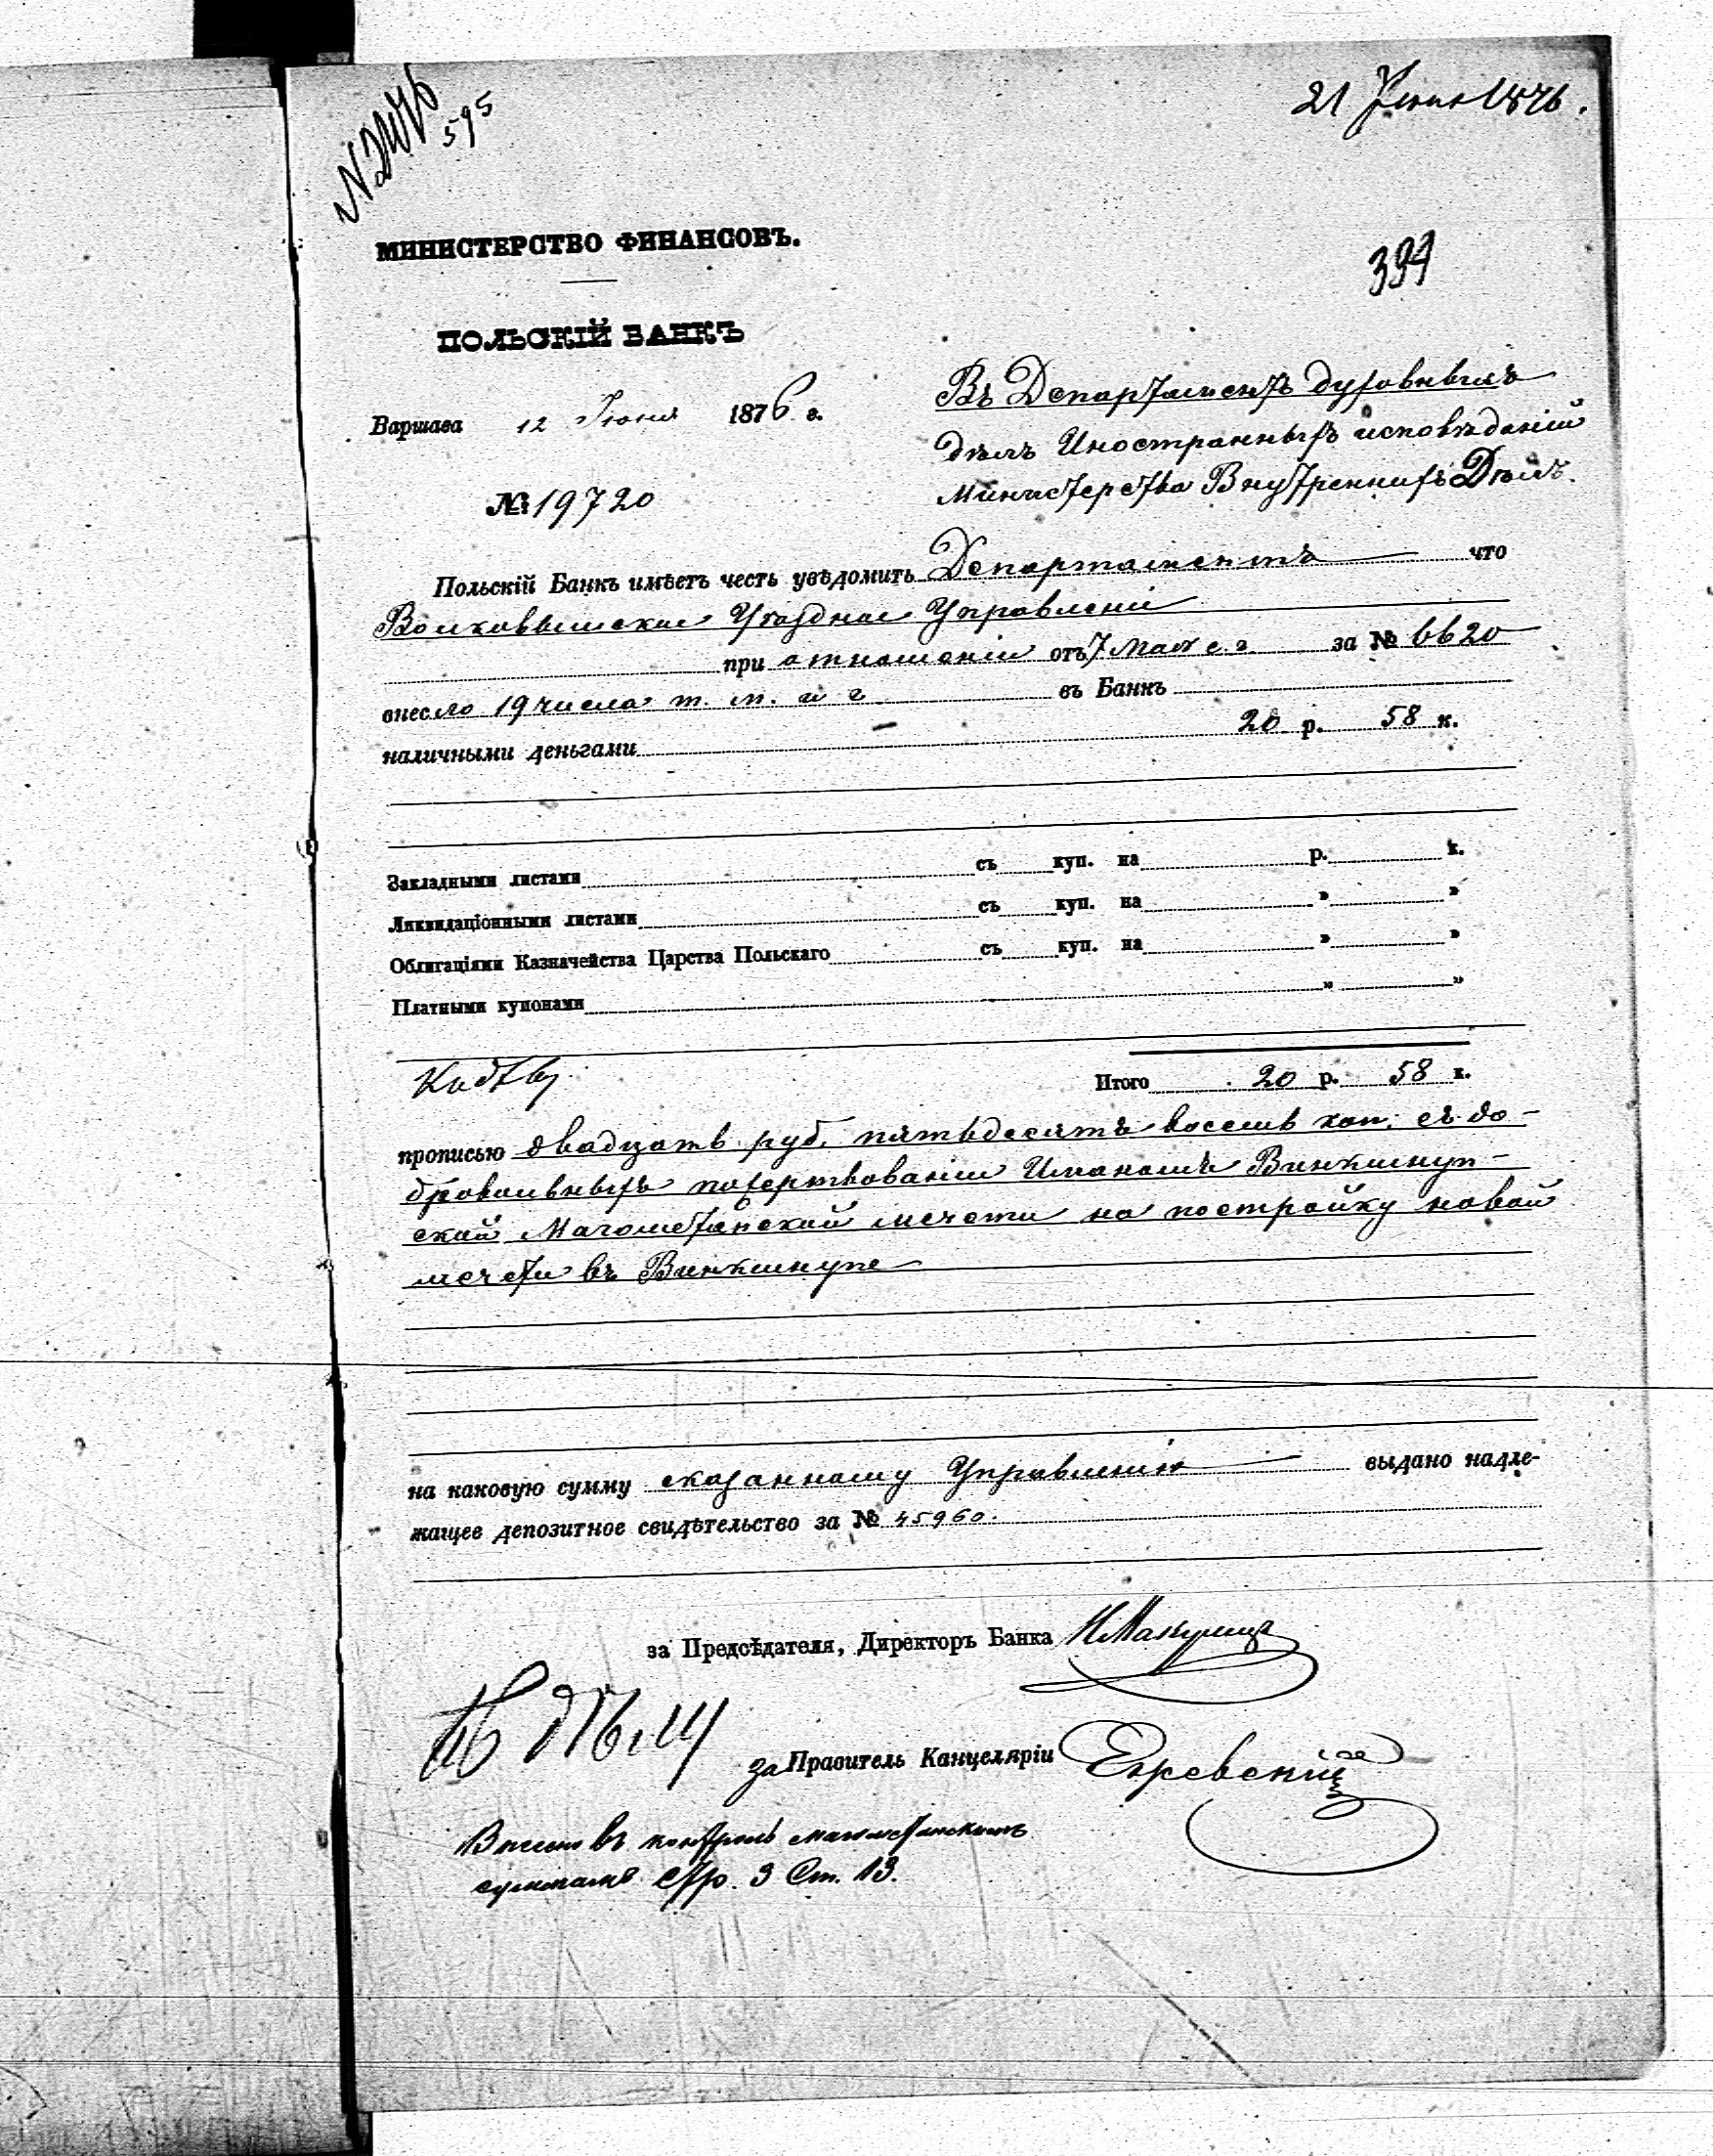 21 Июня 1876.
595
МИНИСТЕРСТВО ФИНАНСОВЪ.
394
ПОЛЬСКІЙ БАНКЪ
Варшава 12 Июня 1876 г.
№ 19720
Въ Департаментъ духовныхъ
дѣлъ Иностранныхъ исповѣданій
Министерства Внутреннихъ Дѣлъ.
Польскій Банкъ имѣетъ честь увѣдомить Департаментъ что
Волковышское Уѣздное Управленіе
при отношеніи отъ 7 Мая с. г. за № 6620
внесло 19 числа т. м. и г. въ Банкъ
наличными деньгами 20 р. 58 к.
Закладными листами съ куп. на р. к.
Ликвидаціонными листами съ куп. на " "
Облигаціями Казначейства Царства Польскаго съ куп. на " "
Платными купонами " "
Итого 20 р. 58 к.
прописью двадцать руб. пятьдесятъ восемь коп. съ до-
бровольныхъ пожертвованій Имамомъ Винкшнуп-
ской Магометанской мечети на постройку новой
мечети въ Винкшнупе
на каковую сумму сказанному Управленію выдано надле-
жащее депозитное свидѣтельство за № 45960.
за Предсѣдателя, Директоръ Банка
за Правитель Канцеляріи
въ контроль магометанскимъ
суммамъ стр. 3 Ст. 13.